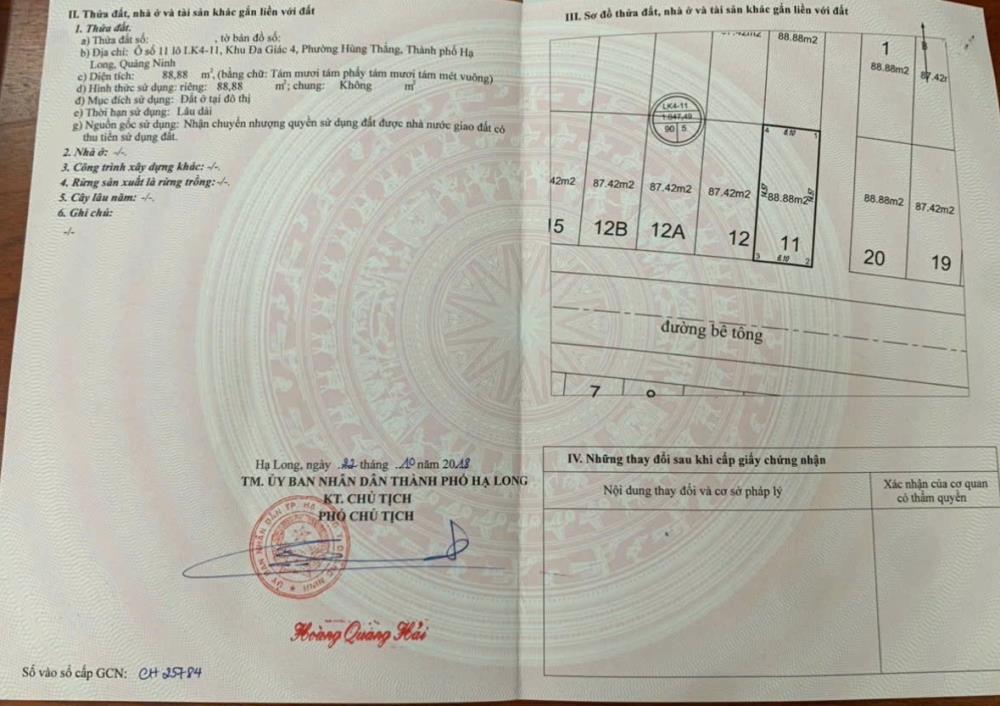 II. Thửa đất, nhà ở và tài sản khác gắn liền với đất
1. Thửa đất.
a) Thửa đất số: , tờ bản đồ số:
b) Địa chỉ: Ô số 11 lô LK4-11, Khu Đa Giác 4, Phường Hùng Thắng, Thành phố Hạ
Long, Quảng Ninh
c) Diện tích: 88,88 m², (bằng chữ: Tám mươi tám phẩy tám mươi tám mét vuông)
d) Hình thức sử dụng: riêng: 88,88 m²; chung: Không m²
đ) Mục đích sử dụng: Đất ở tại đô thị
e) Thời hạn sử dụng: Lâu dài
g) Nguồn gốc sử dụng: Nhận chuyển nhượng quyền sử dụng đất được nhà nước giao đất có
thu tiền sử dụng đất.
2. Nhà ở: -/-.
3. Công trình xây dựng khác: -/-.
4. Rừng sản xuất là rừng trồng: -/-.
5. Cây lâu năm: -/-.
6. Ghi chú:
-/-
Hạ Long, ngày 22 tháng 10 năm 2018
TM. ỦY BAN NHÂN DÂN THÀNH PHỐ HẠ LONG
KT. CHỦ TỊCH
PHÓ CHỦ TỊCH
Hoàng Quang Hải
Số vào sổ cấp GCN: CH 25784
III. Sơ đồ thửa đất, nhà ở và tài sản khác gắn liền với đất
87.42m2 88.88m2 1
88.88m2 87.42
B
LK4-11
1.647,49
90 5
4 6.10 1
42m2 87.42m2 87.42m2 87.42m2 88.88m2 88.88m2 87.42m2
15 12B 12A 12 11 20 19
3 6.10 2
đường bê tông
7
IV. Những thay đổi sau khi cấp giấy chứng nhận
Nội dung thay đổi và cơ sở pháp lý
Xác nhận của cơ quan
có thẩm quyền